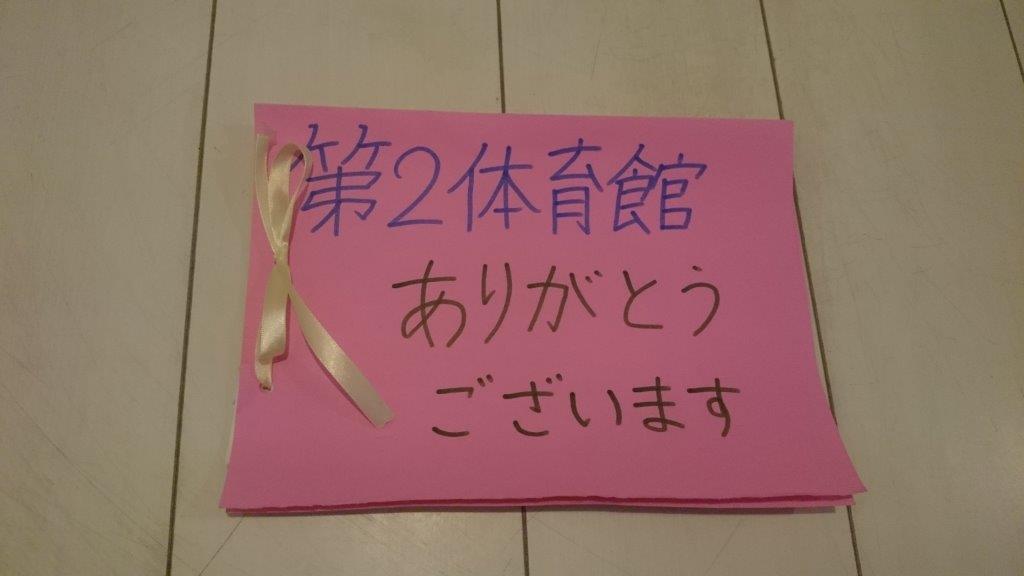 第2体育館
ありがとう
ございます